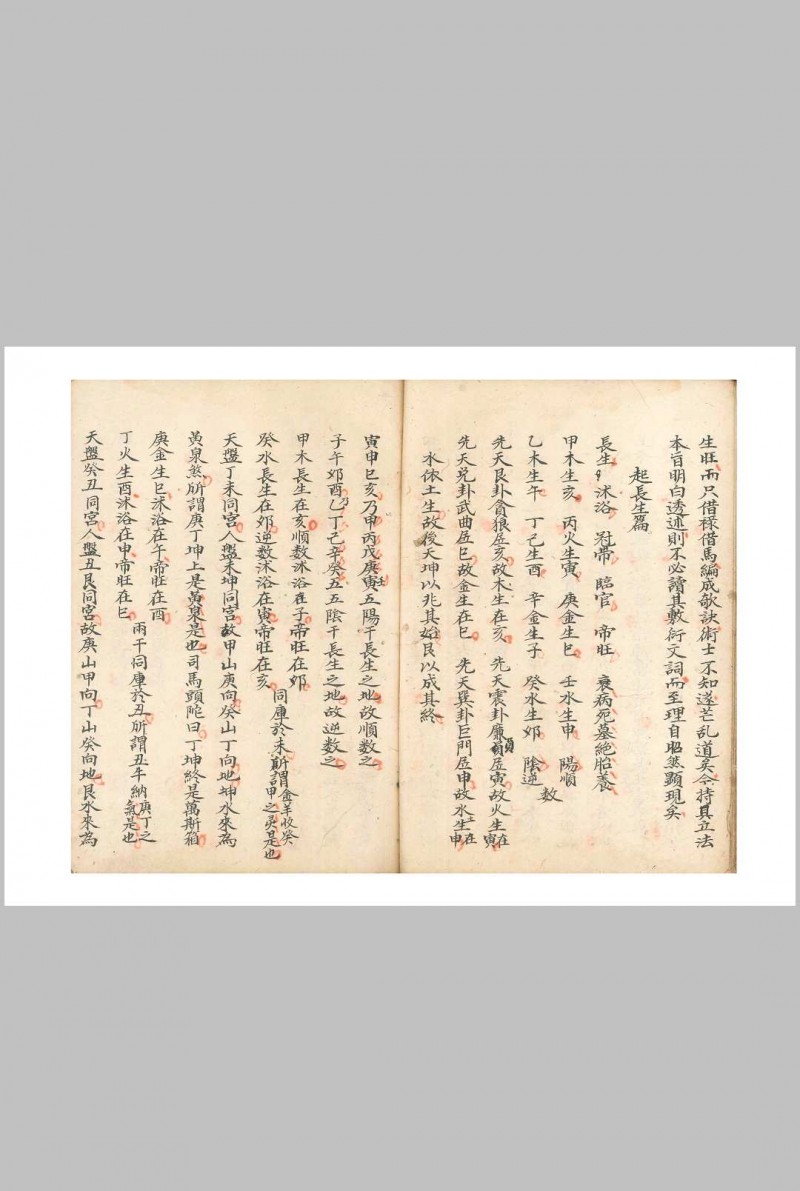 生旺而只借祿借馬編成歌訣術士不知遂芒乱道矣今持具立法
本旨明白透述則不必讀其敷衍文詞而至理自昭然顯現矣
起長生篇
長生 沐浴 冠帶 臨官 帝旺 衰病死墓絕胎養
甲木生亥 丙火生寅 庚金生巳 壬水生申 陽順
乙木生午 丁己生酉 辛金生子 癸水生卯 陰逆數
先天艮卦貪狼居亥故木生在亥 先天震卦廉貞居寅故火生在寅
先天兌卦武曲居巳故金生在巳 先天巽卦巨門居申故水生在申
水依土生故後天坤以兆其始艮以成其終
寅申巳亥乃甲丙戊庚壬五陽干長生之地故順數之
子午卯酉乃乙丁己辛癸五五陰干長生之地故逆数之
甲木長生在亥順数沐浴在子帝旺在卯
癸水長生在卯逆数沐浴在寅帝旺在亥 同庫於未所謂金羊收癸甲之灵是也
天盤丁未同宮人盤未坤同宮故甲山庚向癸山丁向地坤水來為
黃泉煞所謂庚丁坤上是黃泉是也司馬頭陀曰丁坤終是萬斯箱
庚金生巳沐浴在午帝旺在酉
丁火生酉沐浴在申帝旺在巳 兩干同庫於丑所謂丑牛納庚丁之氣是也
天盤癸丑同宮人盤丑艮同宮故庚山甲向丁山癸向地艮水來為